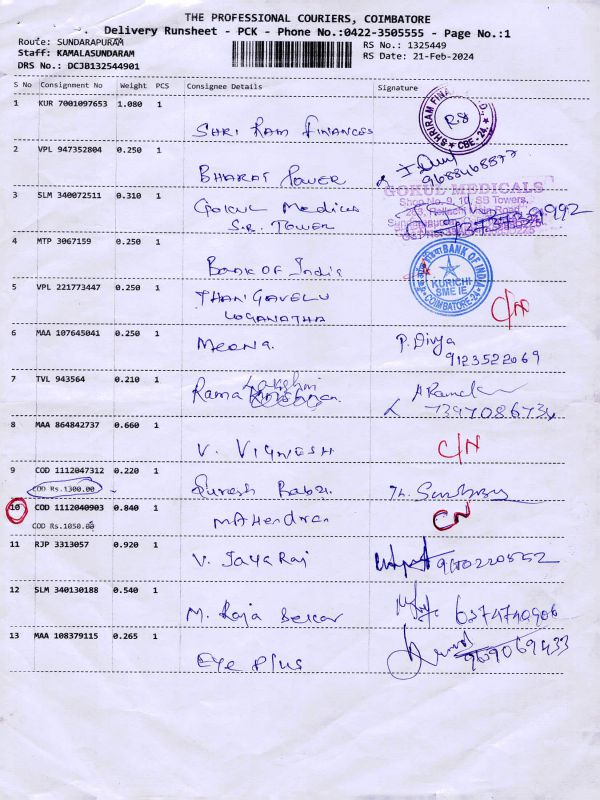 THE PROFESSIONAL COURIERS, COIMBATORE
Delivery Runsheet - PCK - Phone No.:0422-3505555 - Page No.:1
Route: SUNDARAPURAM
RS No.: 1325449
Staff: KAMALASUNDARAM
RS Date: 21-Feb-2024
DRS No.: DCJB132544901
S No Consignment No Weight PCS Consignee Details Signature
1 KUR 7001097653 1.080 1
SHRI RAM FINANCES
SHRIRAM FINANCE
CBE-24
2 VPL 947352804 0.250 1
BHARAT POWER
3 SLM 340072511 0.310 1
Gokul Medicals
S.R. TOWER
GOKUL MEDICALS
Shop No. 9, 10, SB Towers,
4 MTP 3067159 0.250 1
BANK OF India
BANK OF INDIA
KURICHI
SME IE
COIMBATORE-24
5 VPL 221773447 0.250 1
THANGAVELU
LOGANATHA
6 MAA 107645041 0.250 1
Meena.
P. Divya
9123522069
7 TVL 943564 0.210 1
Rama Lakshmi
8 MAA 864842737 0.660 1
V. VIGNESH
C/N
9 COD 1112047312 0.220 1
COD Rs.1300.00
Suresh Babu.
10 COD 1112040903 0.840 1
COD Rs.1050.00
MAHendran
CN
11 RJP 3313057 0.920 1
V. JAYARAJ
12 SLM 340130188 0.540 1
M. Raja Sekar
6374740906
13 MAA 108379115 0.265 1
Eye Plus
9699069433